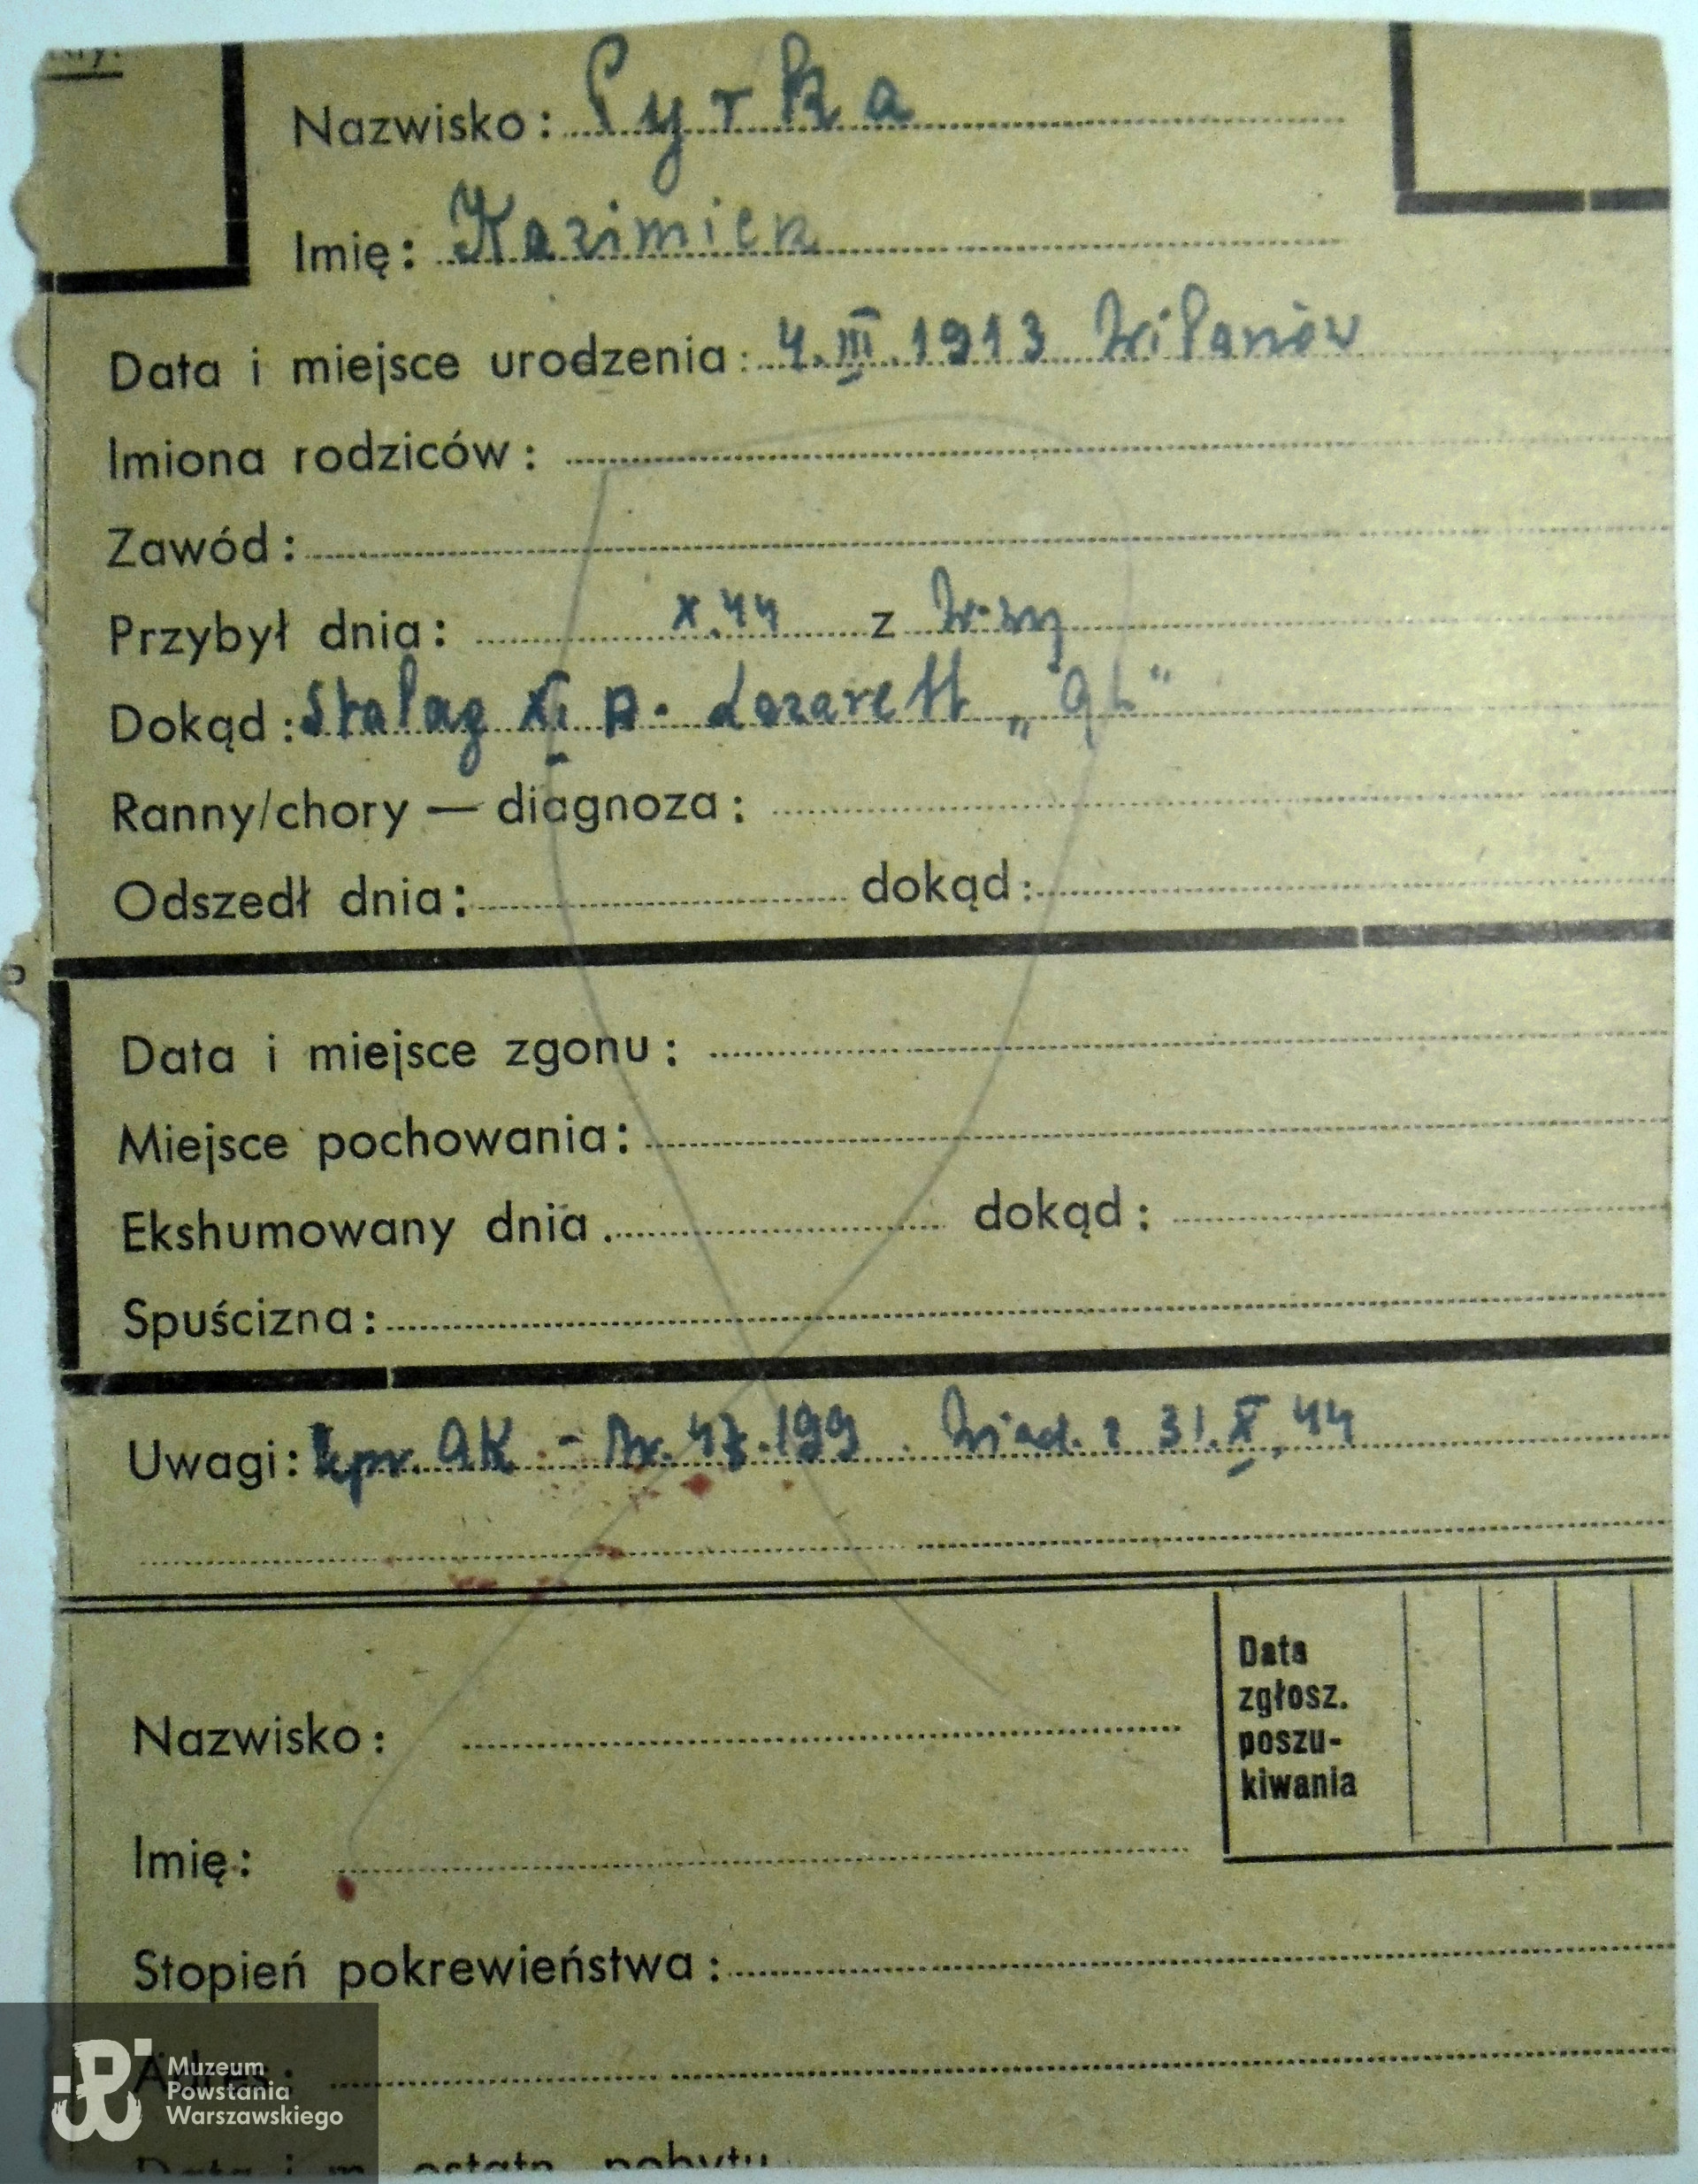 Nazwisko: Pyrka
Imię: Kazimierz
Data i miejsce urodzenia: 4.III.1913 Wilanów
Imiona rodziców:
Zawód:
Przybył dnia: X.44 z W-wy
Dokąd: Stalag XI Lazarett
Ranny/chory — diagnoza:
Odszedł dnia: dokąd:
Data i miejsce zgonu:
Miejsce pochowania:
Ekshumowany dnia dokąd:
Spuścizna:
Uwagi: kpr. AK. - Nr. 47.199. Wiad. z 31.X.44
Nazwisko:
Data
zgłosz.
poszu-
kiwania
Imię:
Stopień pokrewieństwa:
Muzeum
Powstania
Warszawskiego